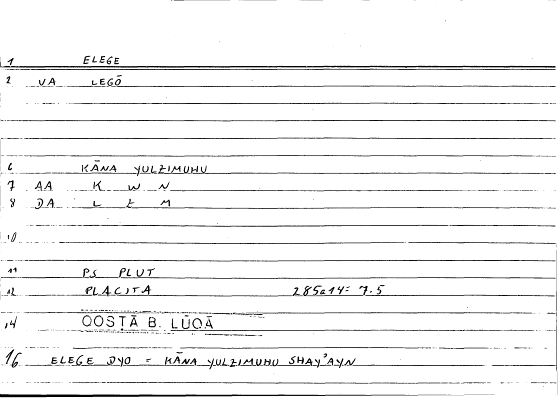 1 ELEGE
2 VA LEGŌ
6 KĀNA YULZIMUHU
7 AA K W N
8 DA L Ẓ M
10
11 PS PLUT
12 PLACITA 285a14= 7.5
14 QOSṬĀ B. LŪQĀ
16 ELEGE DYO = KĀNA YULZIMUHU SHAY'AYN